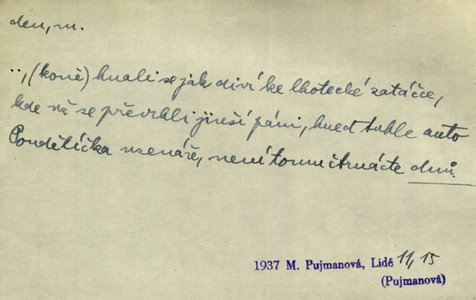 den, m.
.., (koně) hnali se jak diví ke lhotecké zatáčce,
kde už se převrhli jinší páni, hned tuhle auto
Pondělíčka uzenáře, není tomu čtrnácte dnů.
1937 M. Pujmanová, Lidé 11, 15
(Pujmanová)